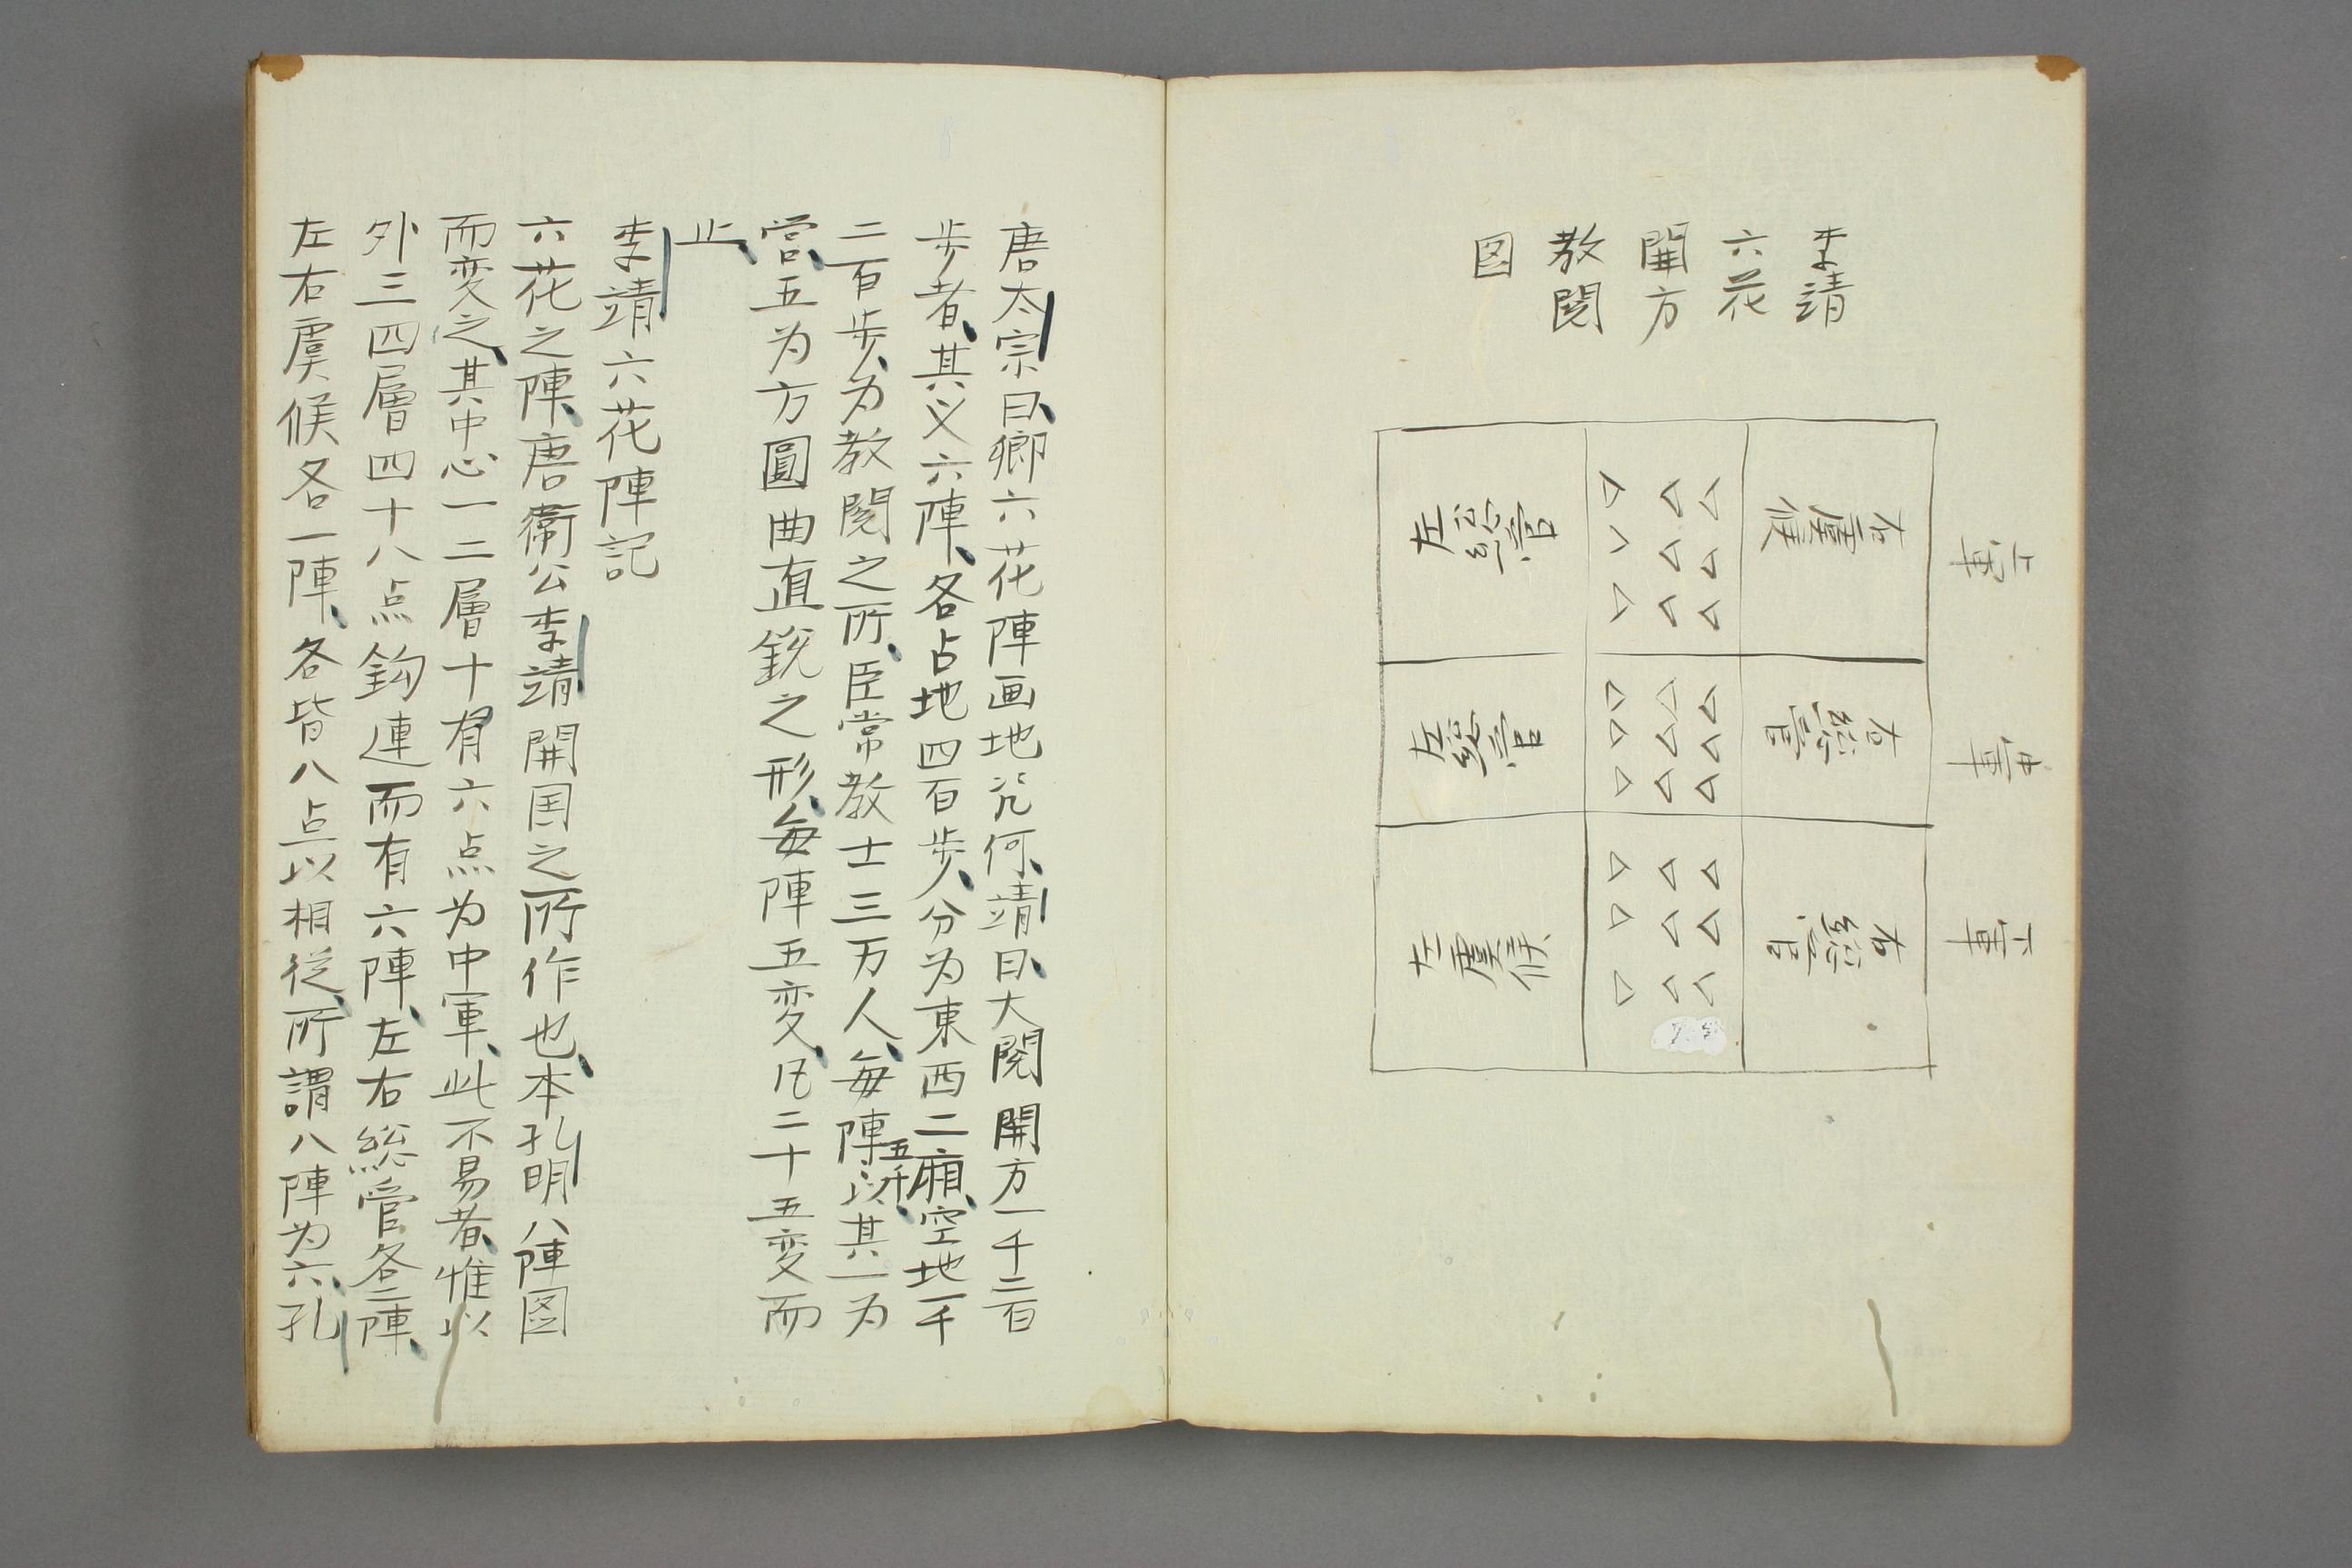 李靖
六花
開方
教閱
图
上軍
中軍
下軍
右虞候
右總管
右總管
左総管
左総管
左虞候
唐太宗曰卿六花陣画地㡬何靖曰大閱開方一千二百
步者其义六陣各占地四百步分为東西二廂空地一千
二百步为教閱之所臣常教士三万人每陣五千以其一为
营五为方圓曲直銳之形每陣五変凡二十五変而
止
李靖六花陣記
六花之陣唐衛公李靖開囯之所作也本孔明八陣图
而変之其中心一二層十有六点为中軍此不易者惟以
外三四層四十八点鈎連而有六陣左右総管各二陣
左右虞候各一陣各皆八点以相從所謂八陣为六孔